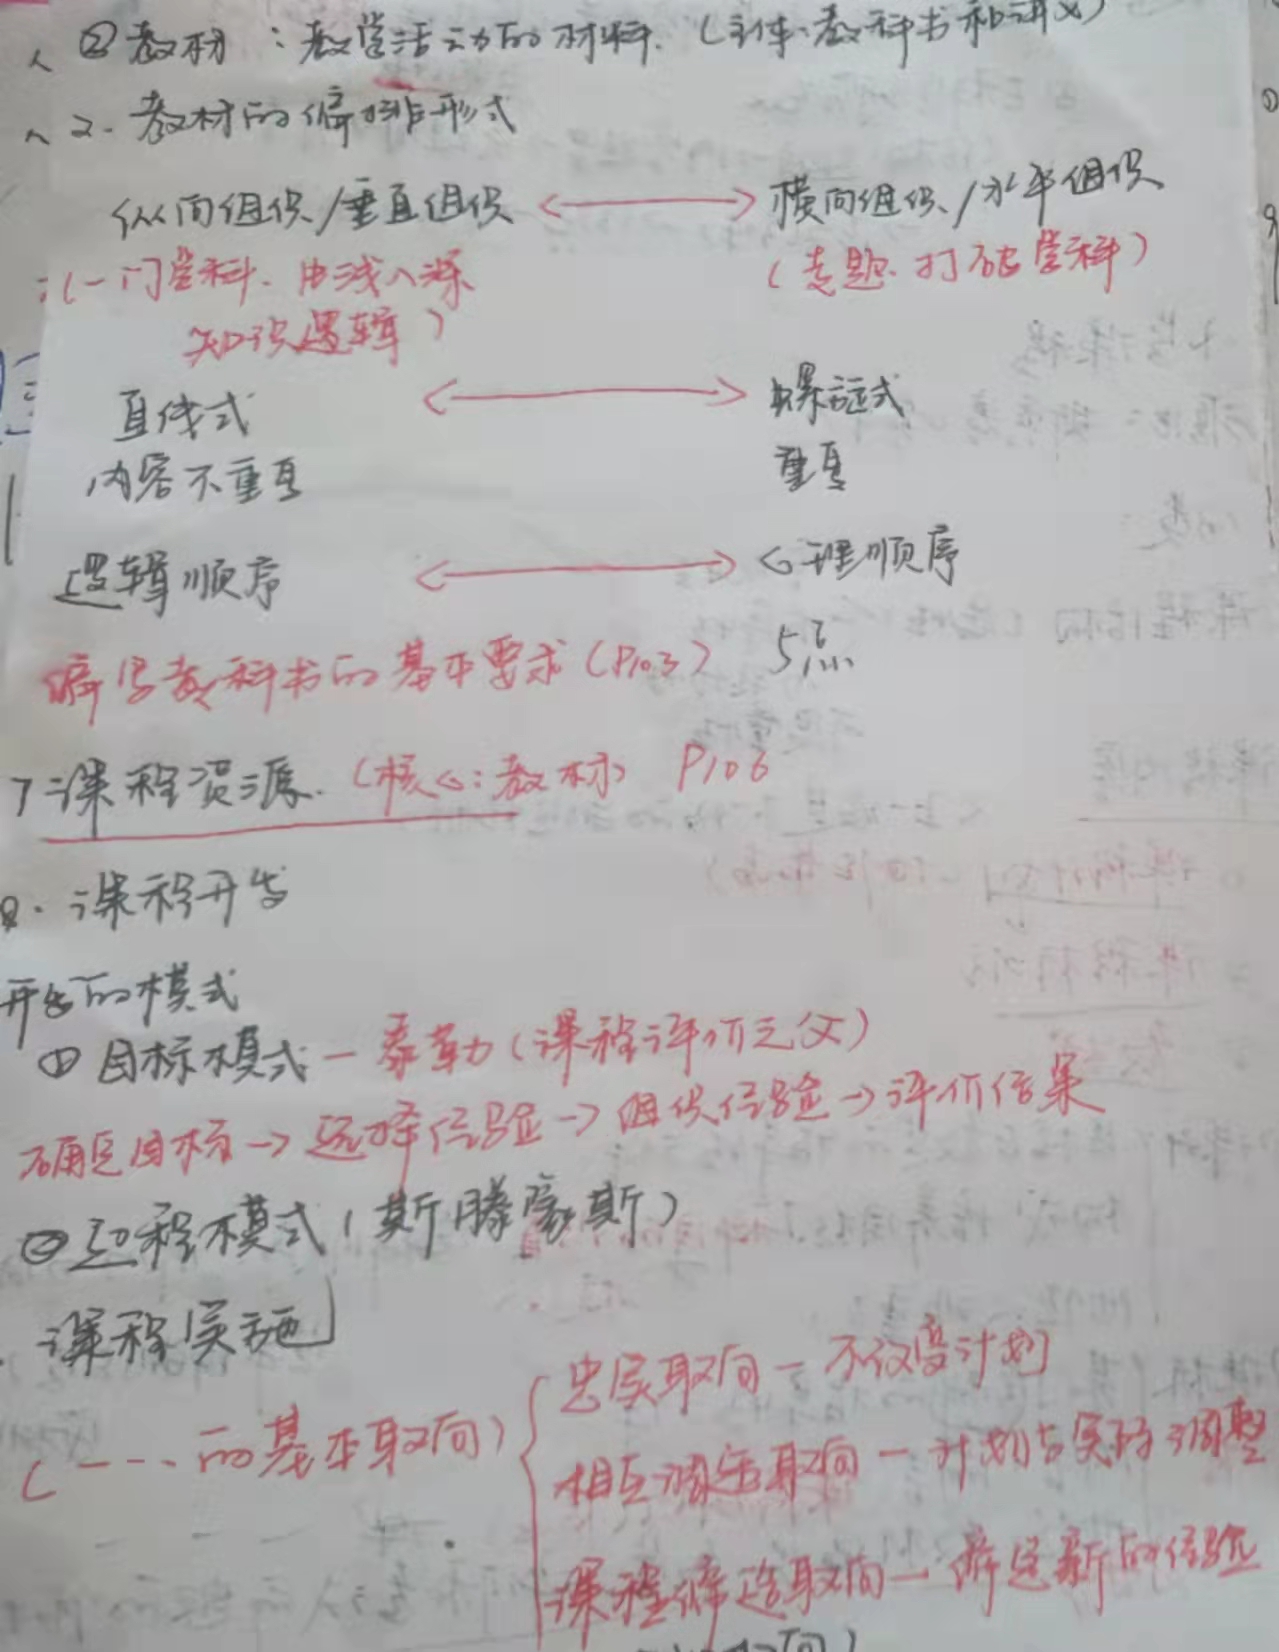 ②教材：教学活动的材料.（主体:教科书和讲义）
2.教材的编排形式
纵向组织/垂直组织 ←→ 横向组织/水平组织
（一门学科.由浅入深 （专题.打破学科）
知识逻辑）
直线式 ←→ 螺旋式
内容不重复 重复
逻辑顺序 ←→ 心理顺序
编写教科书的基本要求（P103） 5点
7课程资源.（核心:教材） P106
8.课程开发
开发的模式
①目标模式—泰勒（课程评价之父）
确定目标→选择经验→组织经验→评价结果
②过程模式（斯腾豪斯）
课程实施
（----的基本取向）{忠实取向—不改变计划
相互调适取向—计划与实际调整
课程缔造取向—缔造新的经验